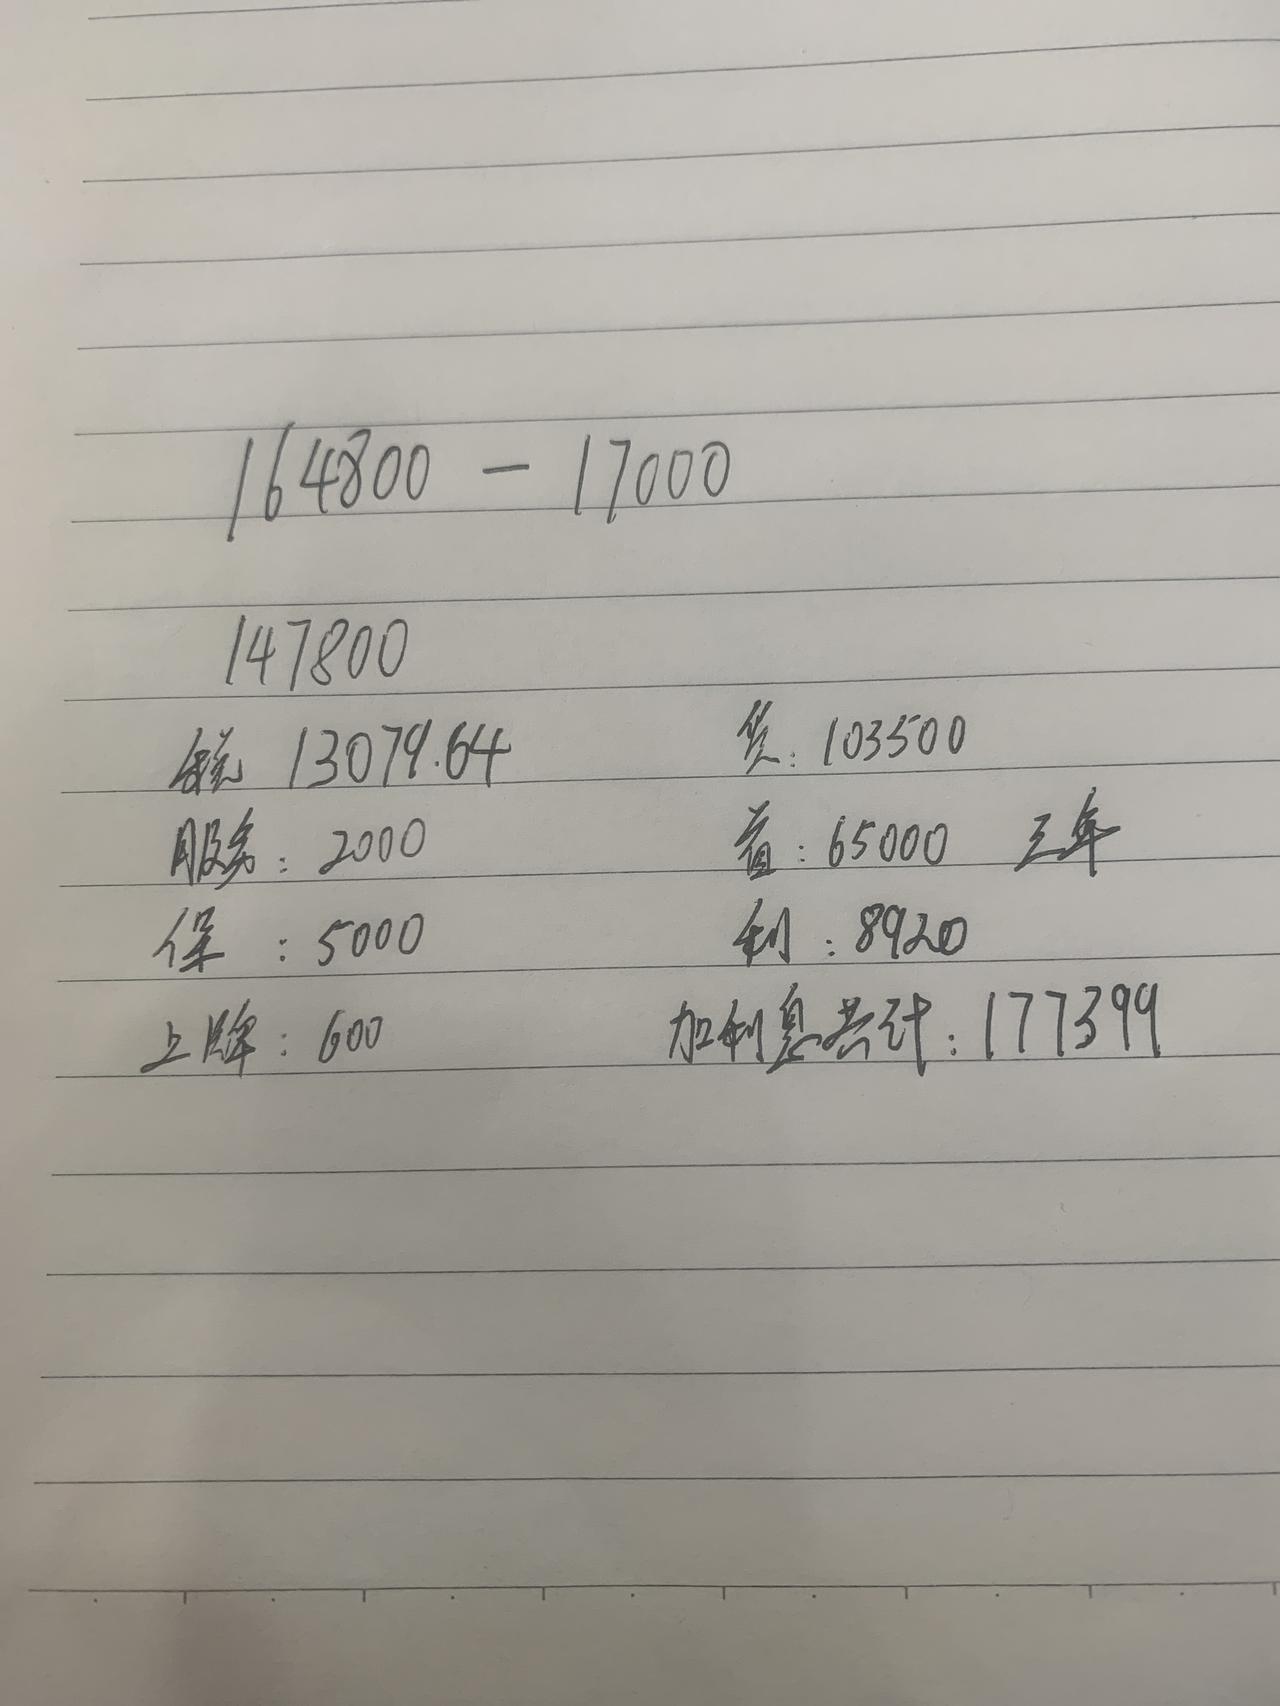 164800 - 17000
147800
税 13079.64
贷: 103500
服务: 2000
首: 65000 三年
保: 5000
利: 8920
上牌: 600
加利息共计: 177399